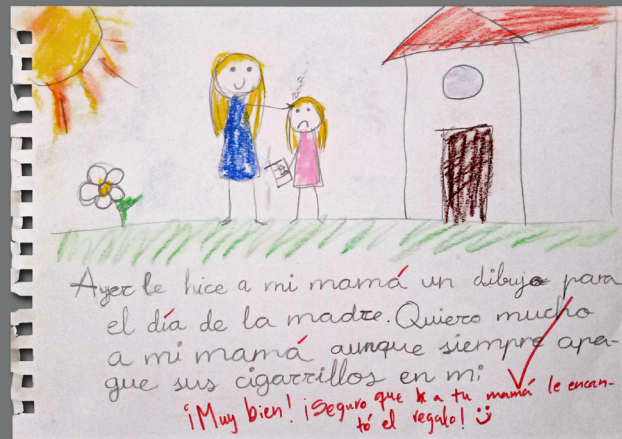 Ayer le hice a mi mamá un dibujo para
el día de la madre. Quiero mucho
a mi mamá aunque siempre apa-
gue sus cigarrillos en mi
¡Muy bien! ¡Seguro que a tu mamá le encan-
tó el regalo!